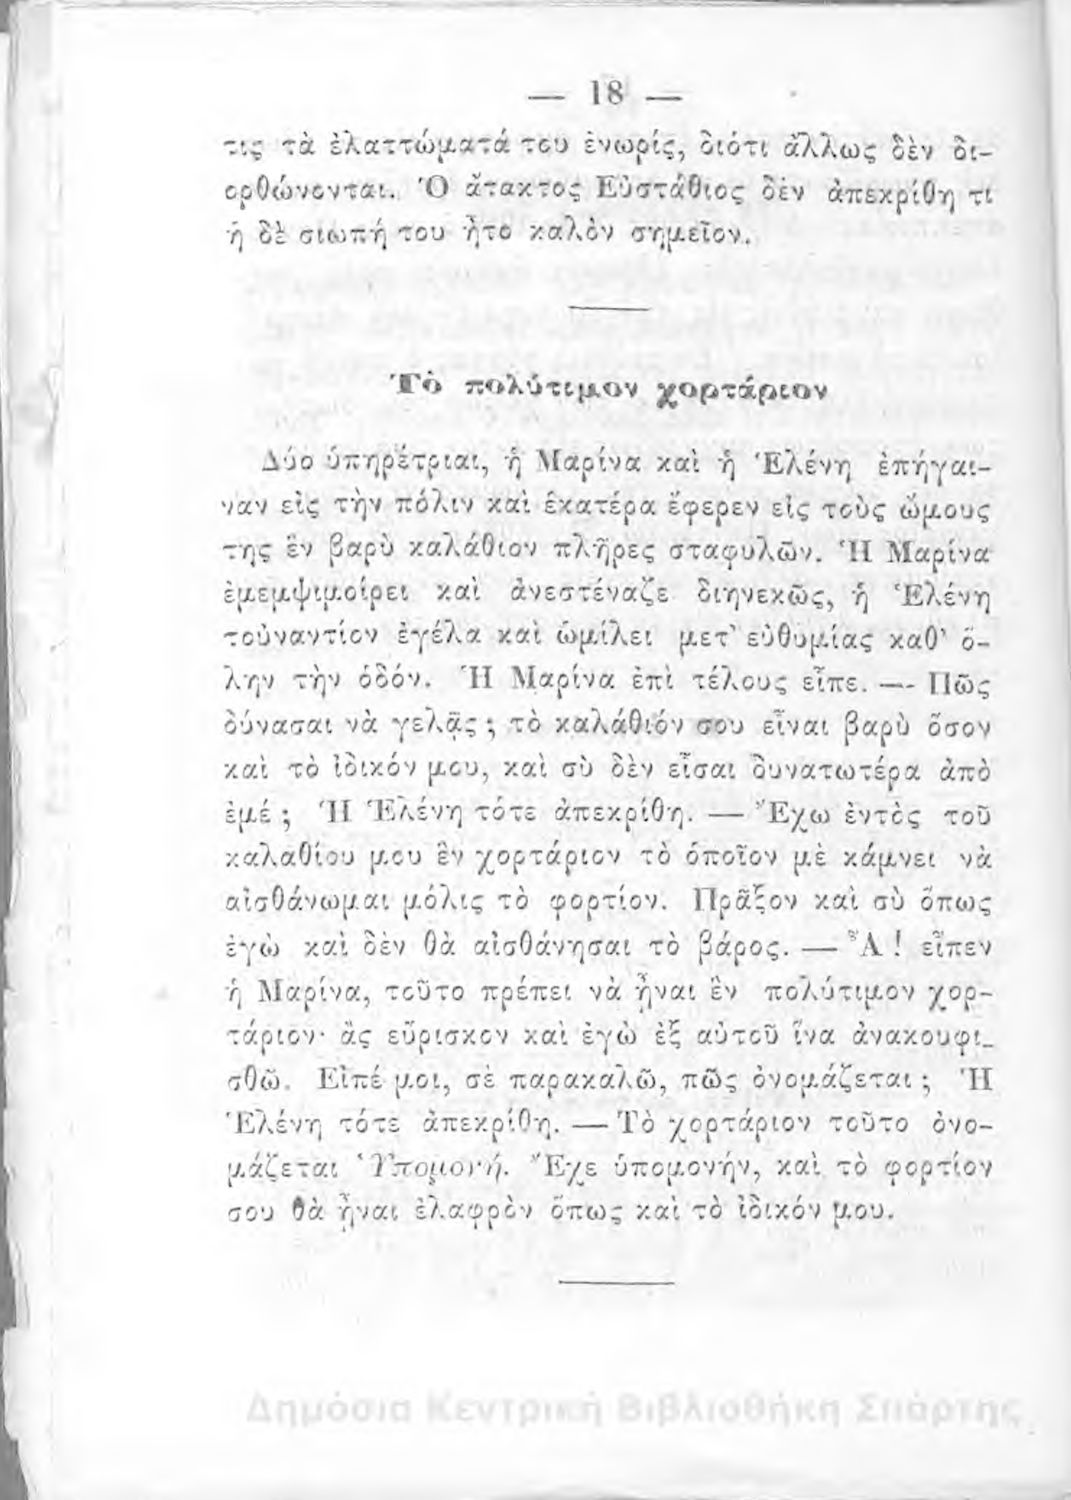 — 18 —
τις τὰ ἐλαττώματά του ἐνωρίς, διότι ἄλλως δὲν δι-
ορθώνονται. Ὁ ἄτακτος Εὐστάθιος δὲν ἀπεκρίθη τι
ἡ δὲ σιωπή του ἦτο καλὸν σημεῖον.
Τὸ πολύτιμον χορτάριον
Δύο ὑπηρέτριαι, ἡ Μαρίνα καὶ ἡ Ἑλένη ἐπήγαι-
ναν εἰς τὴν πόλιν καὶ ἑκατέρα ἔφερεν εἰς τοὺς ὤμους
της ἓν βαρὺ καλάθιον πλῆρες σταφυλῶν. Ἡ Μαρίνα
ἐμεμψιμοίρει καὶ ἀνεστέναζε διηνεκῶς, ἡ Ἑλένη
τοὐναντίον ἐγέλα καὶ ὡμίλει μετ' εὐθυμίας καθ' ὅ-
λην τὴν ὁδόν. Ἡ Μαρίνα ἐπὶ τέλους εἶπε. — Πῶς
δύνασαι νὰ γελᾷς; τὸ καλάθιόν σου εἶναι βαρὺ ὅσον
καὶ τὸ ἰδικόν μου, καὶ σὺ δὲν εἶσαι δυνατωτέρα ἀπὸ
ἐμέ; Ἡ Ἑλένη τότε ἀπεκρίθη. — Ἔχω ἐντὸς τοῦ
καλαθίου μου ἓν χορτάριον τὸ ὁποῖον μὲ κάμνει νὰ
αἰσθάνωμαι μόλις τὸ φορτίον. Πρᾶξον καὶ σὺ ὅπως
ἐγὼ καὶ δὲν θὰ αἰσθάνησαι τὸ βάρος. — Ἆ! εἶπεν
ἡ Μαρίνα, τοῦτο πρέπει νὰ ᾖναι ἓν πολύτιμον χορ-
τάριον· ἂς εὕρισκον καὶ ἐγὼ ἐξ αὐτοῦ ἵνα ἀνακουφι-
σθῶ. Εἰπέ μοι, σὲ παρακαλῶ, πῶς ὀνομάζεται; Ἡ
Ἑλένη τότε ἀπεκρίθη. — Τὸ χορτάριον τοῦτο ὀνο-
μάζεται Ὑπομονή. Ἔχε ὑπομονήν, καὶ τὸ φορτίον
σου θὰ ᾖναι ἐλαφρὸν ὅπως καὶ τὸ ἰδικόν μου.
Δημόσια Κεντρική Βιβλιοθήκη Σπάρτης